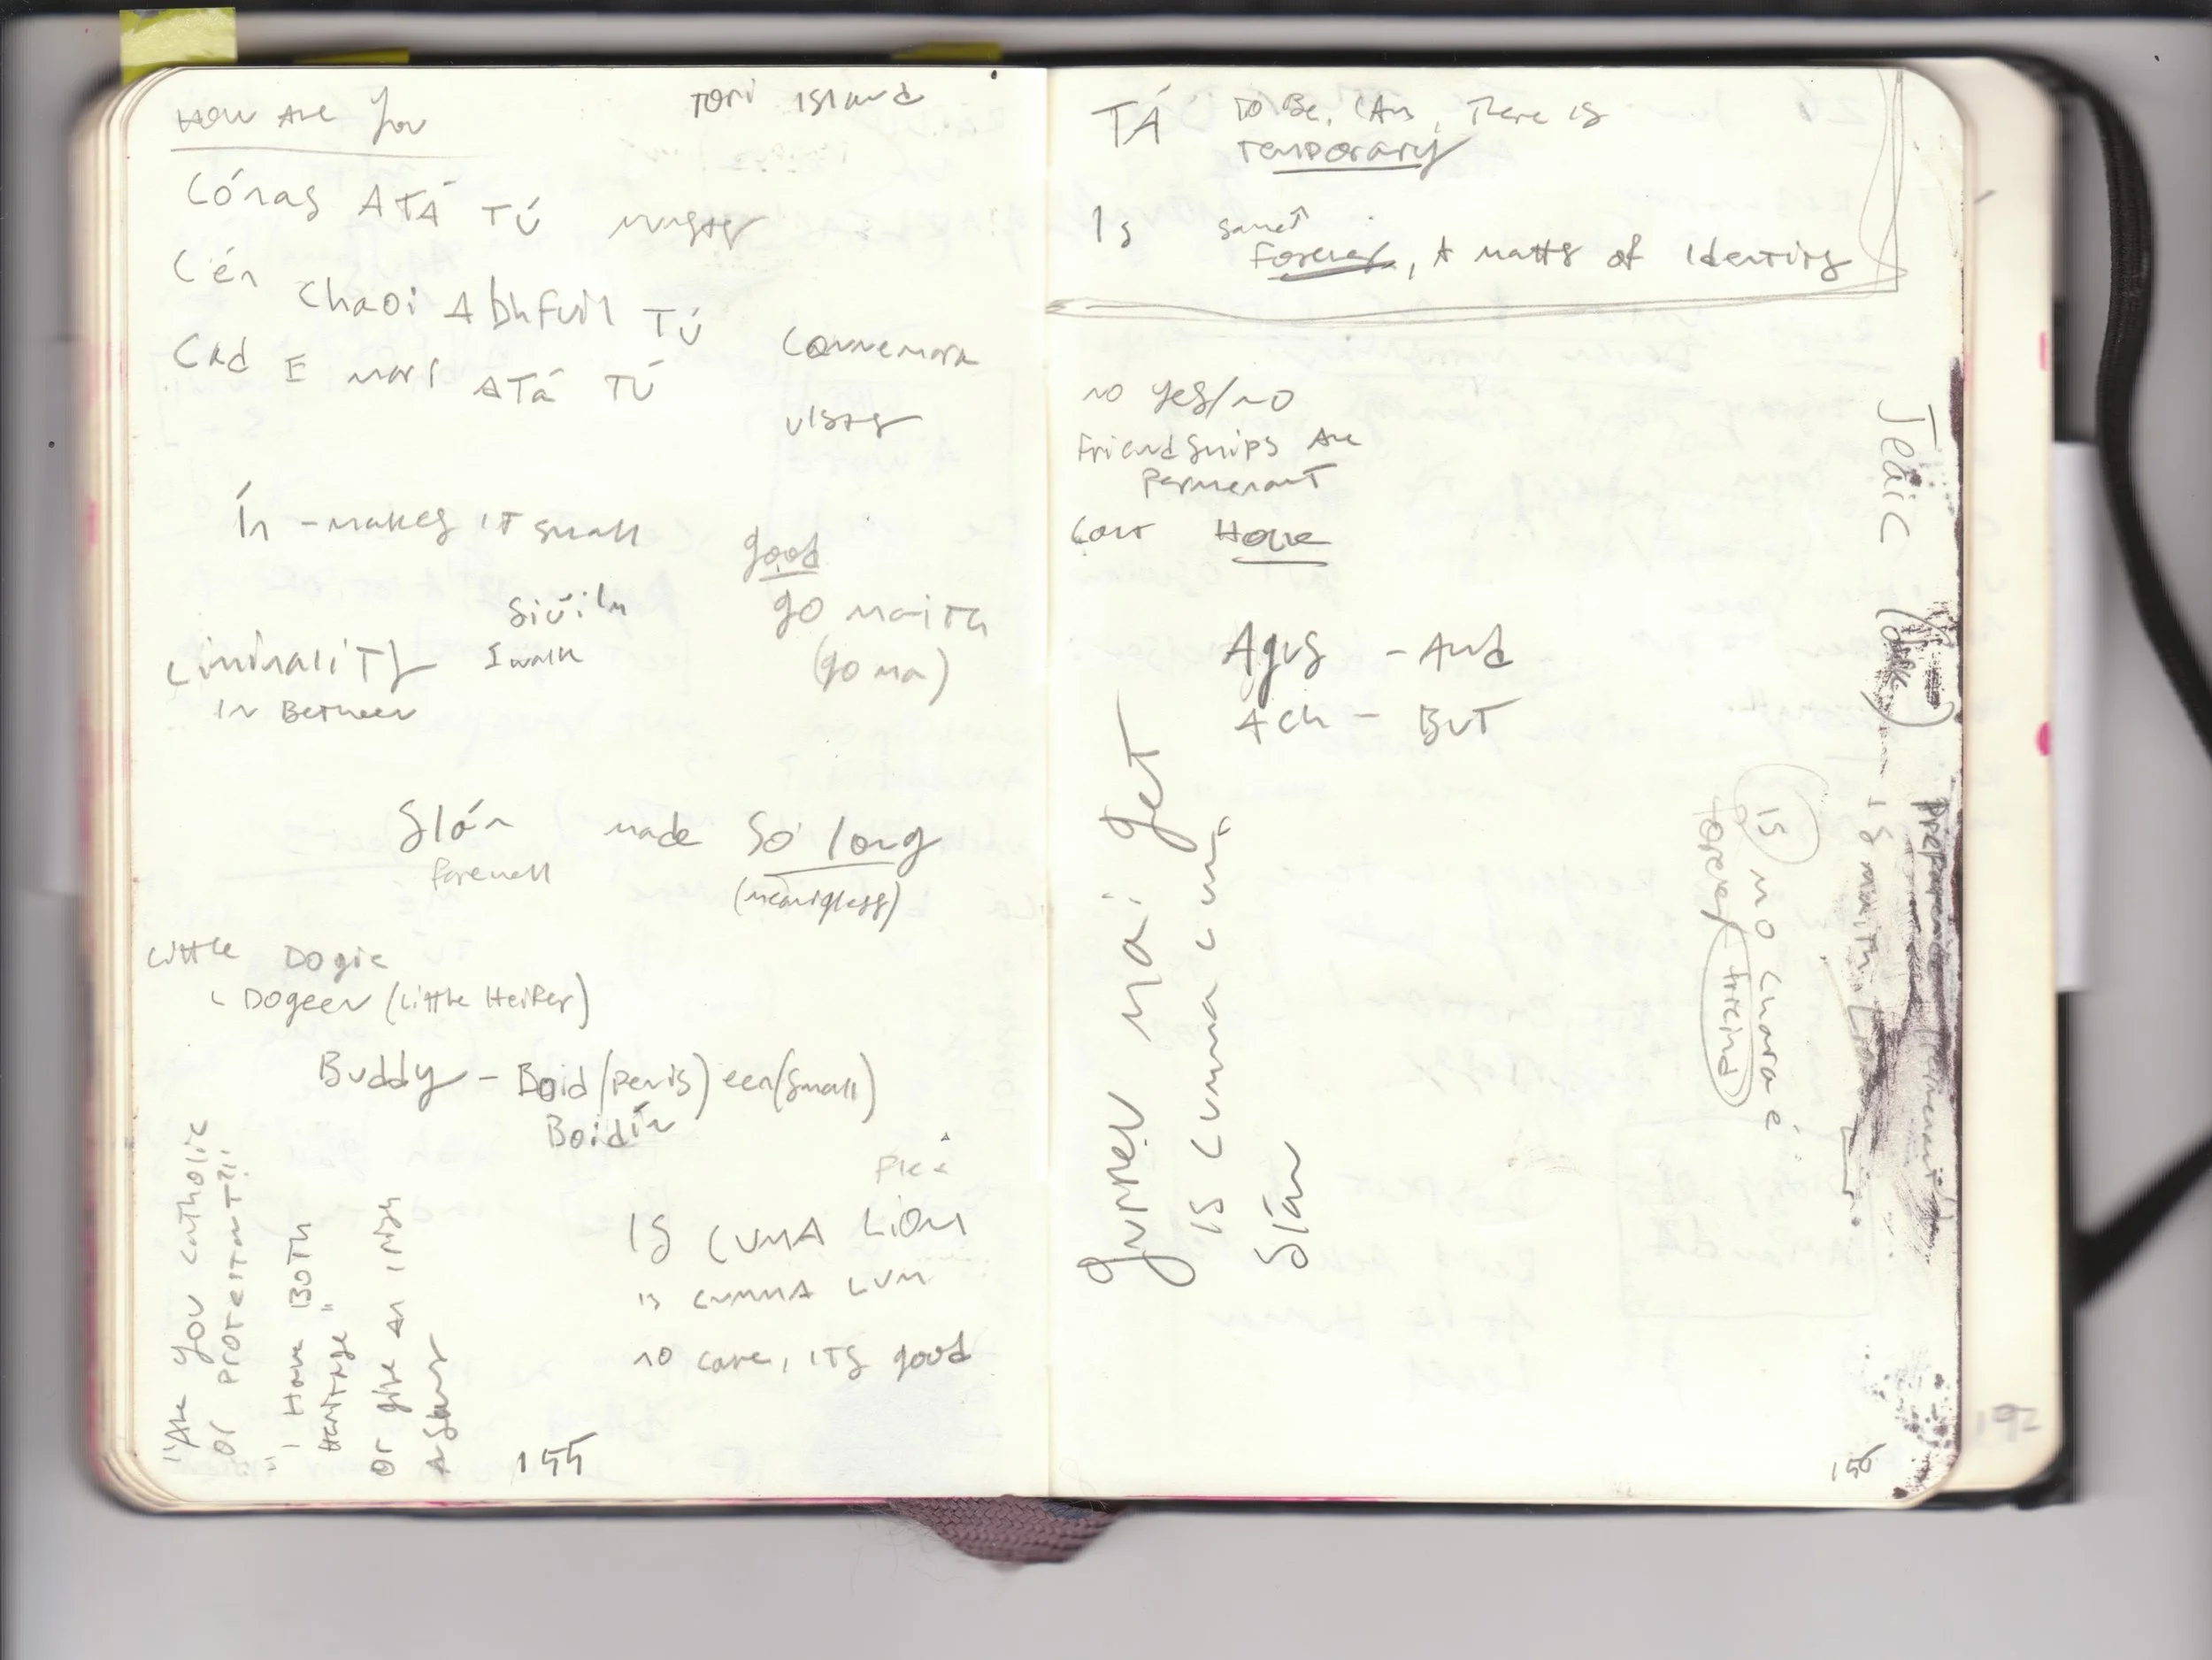 How Are You
Tori Island
Cónas ATÁ TÚ
Cén Chaoi A bhfuil TÚ
Connemara
Cad E marí ATá TÚ
ulster
Ín - makes it small
good
go maith
(go ma)
Siúiln
I walk
Liminality
In Between
Slán made So long
farewell
(meaningless)
Little Dogie
Dogeen (Little Heifer)
Buddy - Boid (penis) een (small)
Boidín
IS CUMA LIOM
is cumma lum
no care, its good
"Are you Catholic
or Protestant?!!
"I Have BOTH
Heritage"
or give an Irish
Answer
155
TÁ To Be, I Am, There is
Temporary
Is
Forever, A matter of Identity
no yes/no
Friendships Are
Permenant
Can't Have
Agus - And
Ach - BUT
Slán
Jeáic
IS mo chara é
forever friend
is maith
156
192